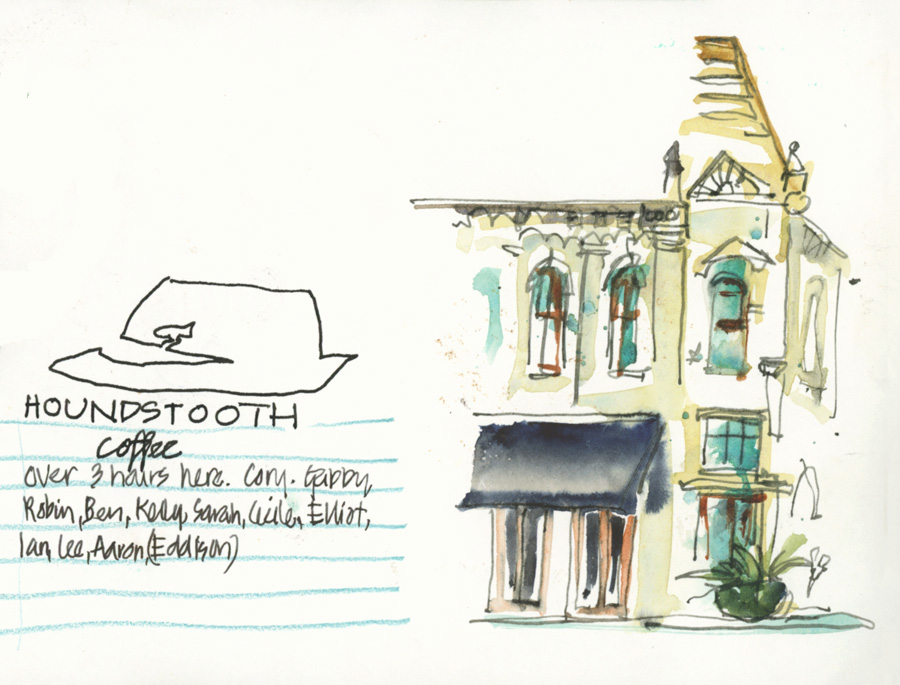 1000
HOUNDSTOOTH
coffee
over 3 hours here. Cory. Gabby,
Robin, Ben, Kelly, Sarah, Cecile, Elliot,
Ian, Lee, Aaron (Eddison)